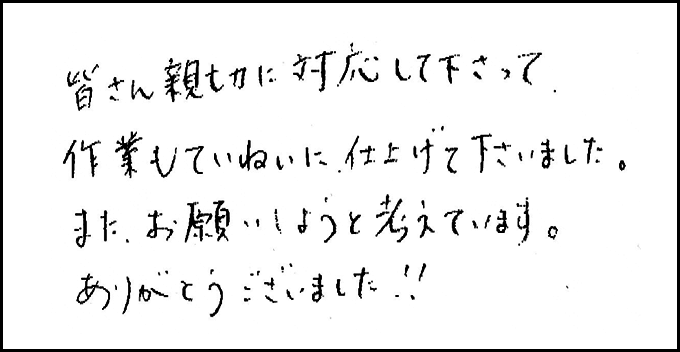 皆さん親切に対応して下さって、
作業もていねいに、仕上げて下さいました。
また、お願いしようと考えています。
ありがとうございました!!